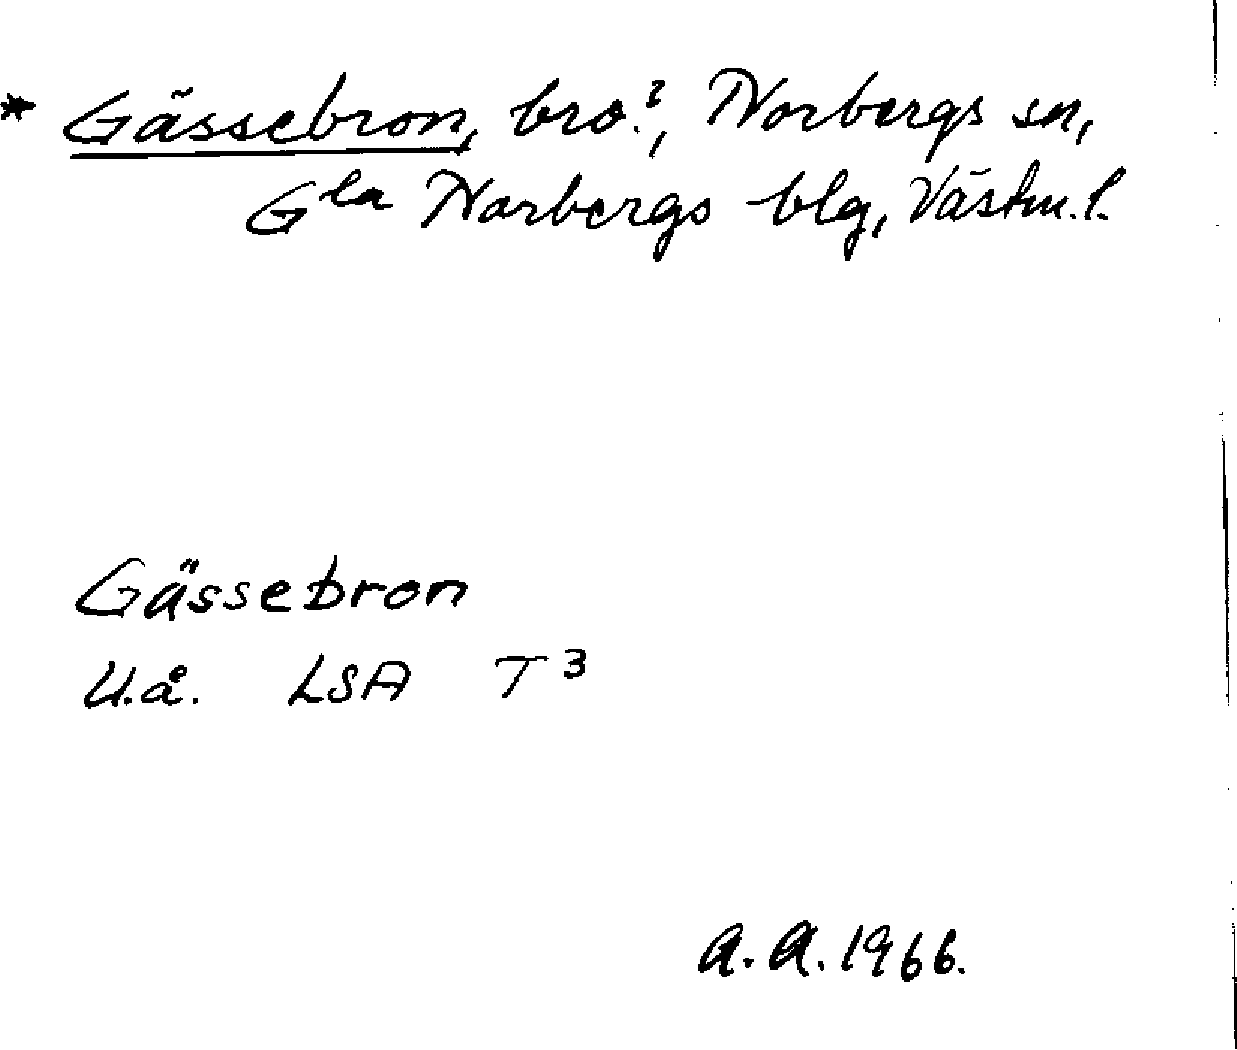 * Gässebron, bro?, Norbergs sn,
Gla Norbergs blg, Västm. l.
Gässebron
U.å. LSA T3
A. A. 1966.